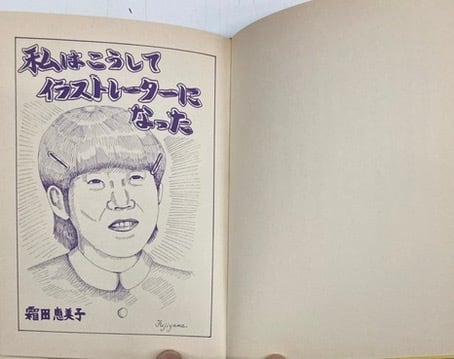 私はこうして
イラストレーターに
なった
霜田恵美子
Fujiyama